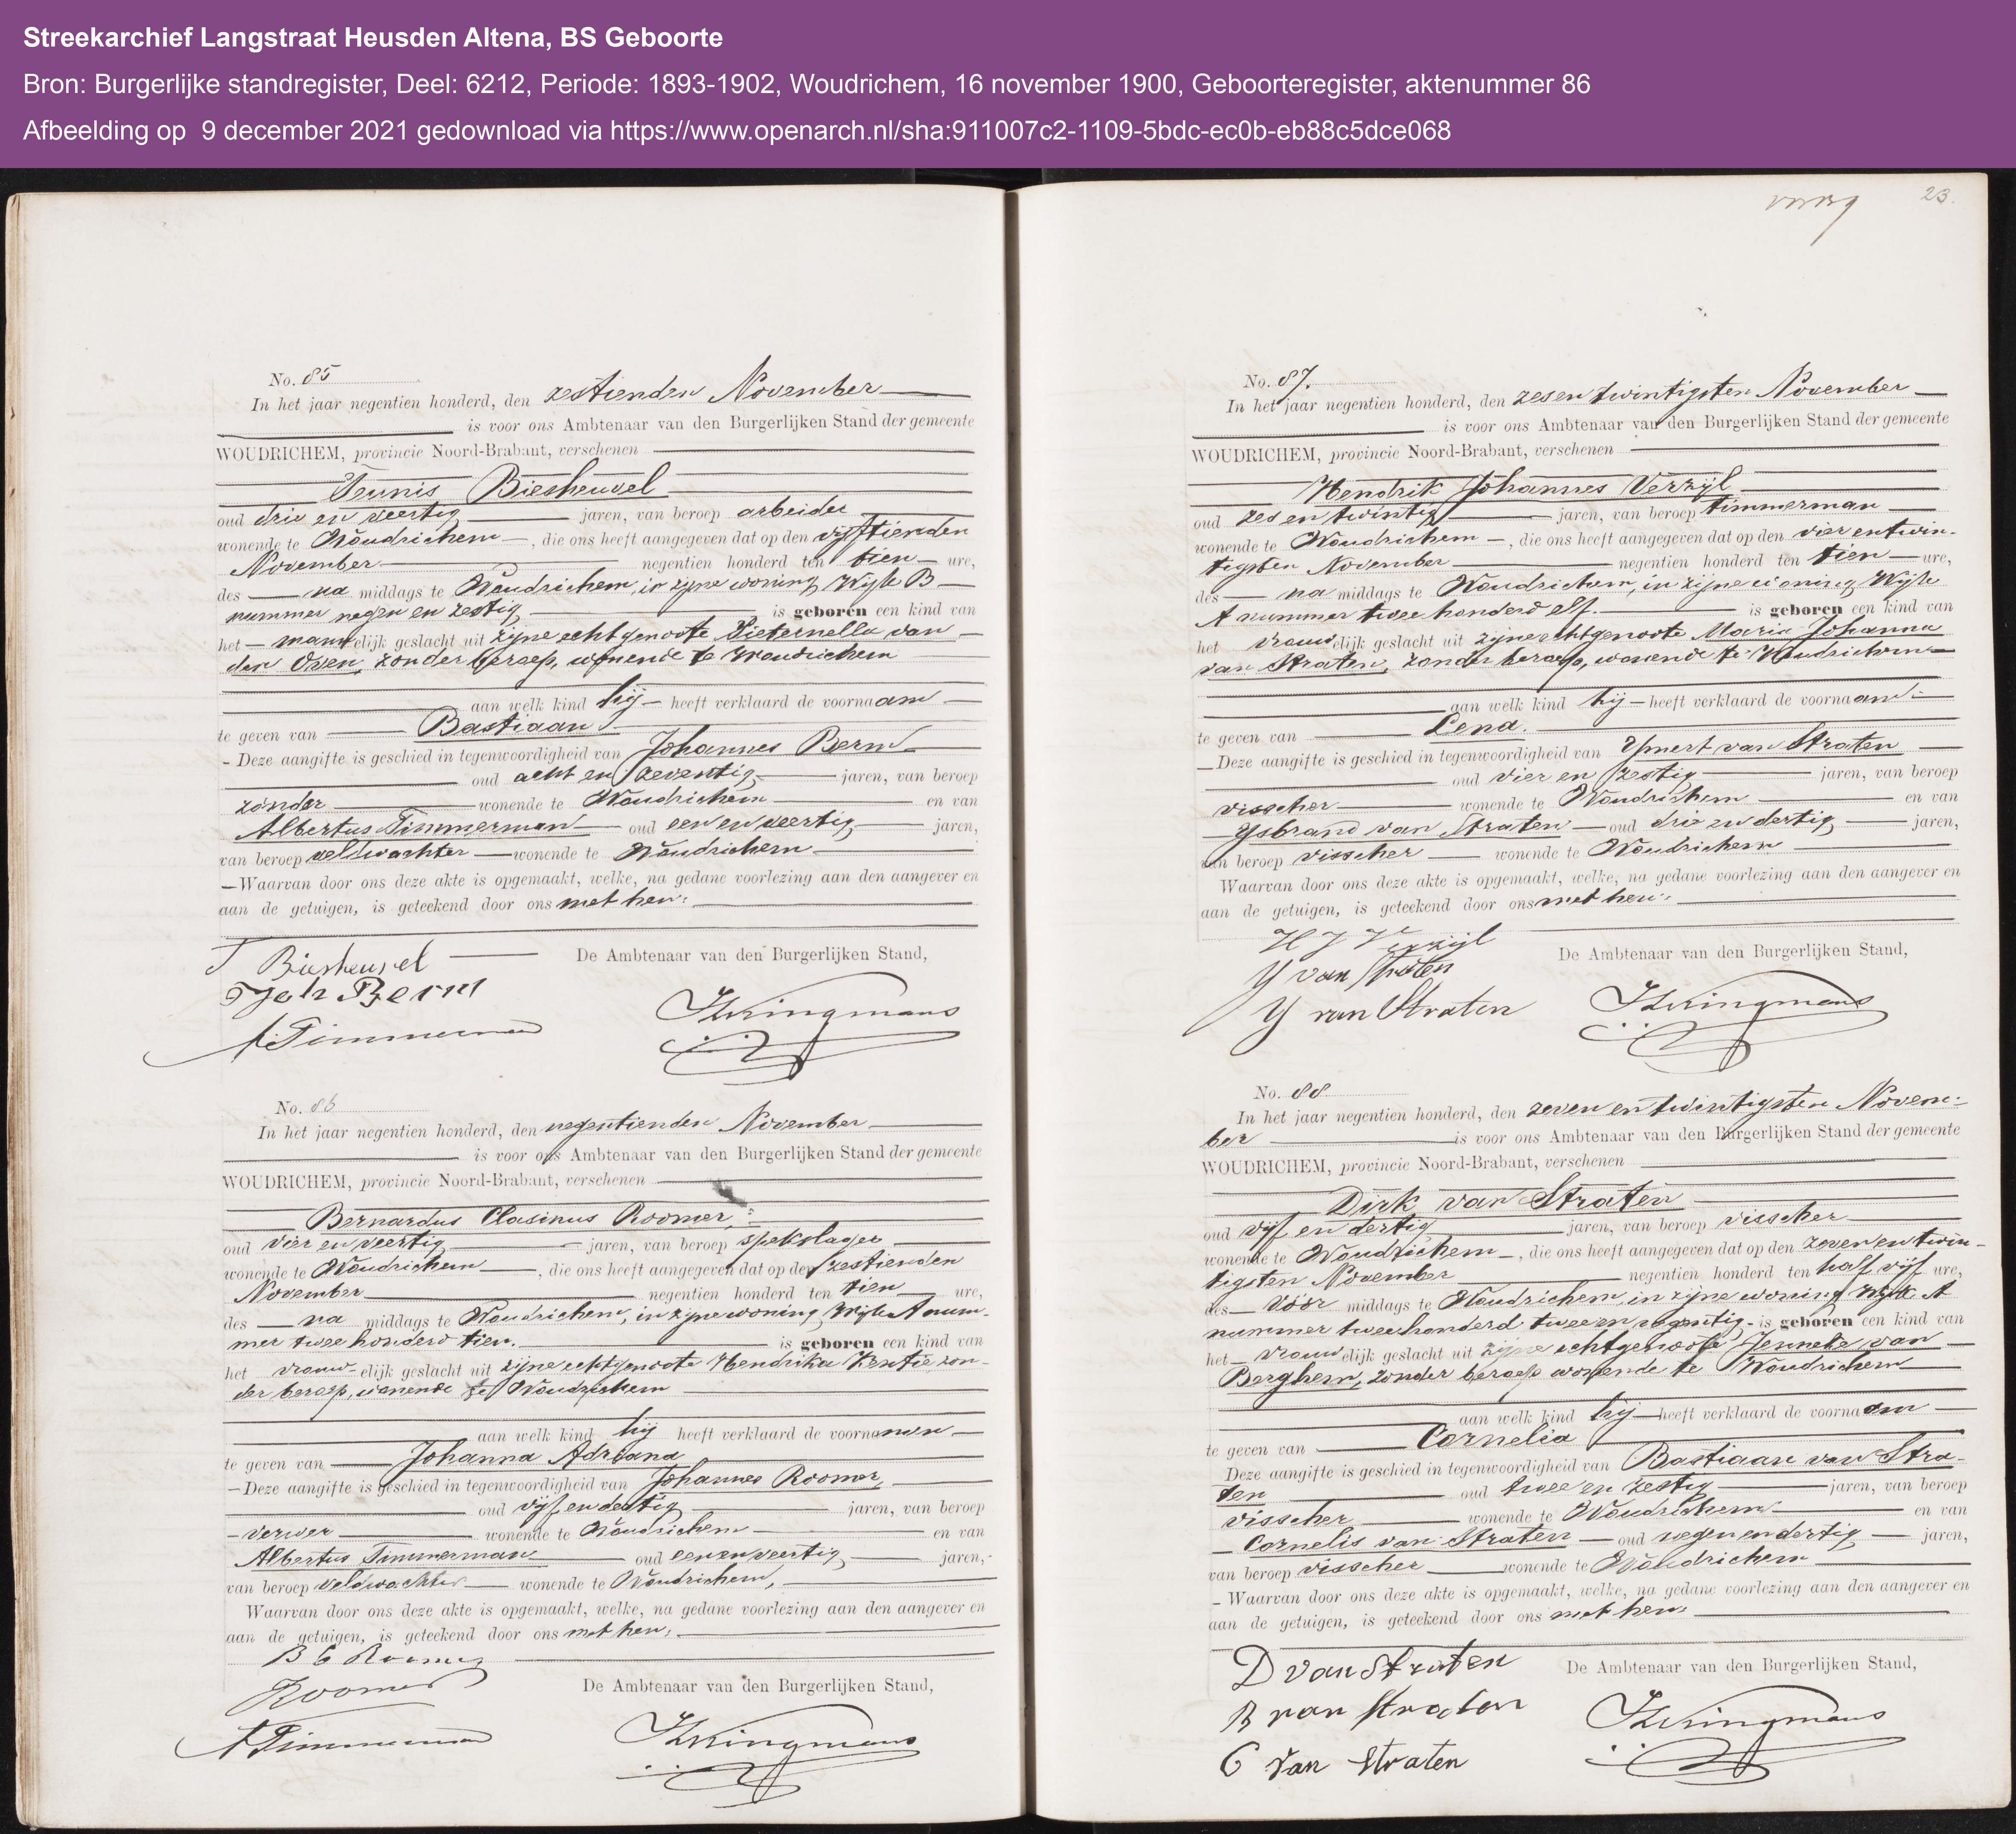 Streekarchief Langstraat Heusden Altena, BS Geboorte
Bron: Burgerlijke standregister, Deel: 6212, Periode: 1893-1902, Woudrichem, 16 november 1900, Geboorteregister, aktenummer 86
Afbeelding op 9 december 2021 gedownload via https://www.openarch.nl/sha:911007c2-1109-5bdc-ec0b-eb88c5dce068
No. 85
In het jaar negentien honderd, den zestienden November
is voor ons Ambtenaar van den Burgerlijken Stand der gemeente
WOUDRICHEM, provincie Noord-Brabant, verschenen
Teunis Biesheuvel
oud drie en veertig jaren, van beroep arbeider
wonende te Woudrichem, die ons heeft aangegeven dat op den vijftienden
November negentien honderd ten tien ure,
des na middags te Woudrichem, in zijne woning Wijk B
nummer negen en zestig is geboren een kind van
het mannelijk geslacht uit zijne echtgenoote Pieternella van
den Oven, zonder beroep, wonende te Woudrichem
aan welk kind hij heeft verklaard de voornaam
te geven van Bastiaan
Deze aangifte is geschied in tegenwoordigheid van Johannes Berm
oud acht en zeventig jaren, van beroep
zonder wonende te Woudrichem en van
Albertus Timmerman oud een en veertig jaren,
van beroep veldwachter wonende te Woudrichem
Waarvan door ons deze akte is opgemaakt, welke, na gedane voorlezing aan den aangever en
aan de getuigen, is geteekend door ons met hen.
T Biesheuvel De Ambtenaar van den Burgerlijken Stand,
Joh Berm
A Timmerman
No. 86
In het jaar negentien honderd, den negentienden November
is voor ons Ambtenaar van den Burgerlijken Stand der gemeente
WOUDRICHEM, provincie Noord-Brabant, verschenen
Bernardus Clasinus Roomer,
oud vier en veertig jaren, van beroep spekslager
wonende te Woudrichem, die ons heeft aangegeven dat op den zestienden
November negentien honderd ten tien ure,
des na middags te Woudrichem, in zijne woning Wijk A num-
mer twee honderd tien. is geboren een kind van
het vrouwelijk geslacht uit zijne echtgenoote Hendrika Kentie zon-
der beroep, wonende te Woudrichem
aan welk kind hij heeft verklaard de voornamen
te geven van Johanna Adriana
Deze aangifte is geschied in tegenwoordigheid van Johannes Roomer,
oud vijf en dertig jaren, van beroep
verwer wonende te Woudrichem en van
Albertus Timmerman oud een en veertig jaren,
van beroep veldwachter wonende te Woudrichem,
Waarvan door ons deze akte is opgemaakt, welke, na gedane voorlezing aan den aangever en
aan de getuigen, is geteekend door ons met hen.
B C Roomer
Roomer De Ambtenaar van den Burgerlijken Stand,
A Timmerman
23.
No. 87.
In het jaar negentien honderd, den zesentwintigsten November
is voor ons Ambtenaar van den Burgerlijken Stand der gemeente
WOUDRICHEM, provincie Noord-Brabant, verschenen
Hendrik Johannes Verzijl
oud zes en twintig jaren, van beroep timmerman
wonende te Woudrichem, die ons heeft aangegeven dat op den vier en twin-
tigsten November negentien honderd ten tien ure,
des na middags te Woudrichem, in zijne woning Wijk
A nummer twee honderd elf. is geboren een kind van
het vrouwelijk geslacht uit zijne echtgenoote Maria Johanna
van Straten, zonder beroep, wonende te Woudrichem
aan welk kind hij heeft verklaard de voornaam
te geven van Lena.
Deze aangifte is geschied in tegenwoordigheid van Ymert van Straten
oud vier en zestig jaren, van beroep
visscher wonende te Woudrichem en van
Ysbrand van Straten oud drie en dertig jaren,
van beroep visscher wonende te Woudrichem
Waarvan door ons deze akte is opgemaakt, welke, na gedane voorlezing aan den aangever en
aan de getuigen, is geteekend door ons met hen.
H J Verzijl De Ambtenaar van den Burgerlijken Stand,
Y van Straten
Y van Straten
No. 88
In het jaar negentien honderd, den zeven en twintigsten Novem-
ber is voor ons Ambtenaar van den Burgerlijken Stand der gemeente
WOUDRICHEM, provincie Noord-Brabant, verschenen
Dirk van Straten
oud vijf en dertig jaren, van beroep visscher
wonende te Woudrichem, die ons heeft aangegeven dat op den zeven en twin-
tigsten November negentien honderd ten half vijf ure,
des vóór middags te Woudrichem, in zijne woning Wijk A
nummer twee honderd twee en negentig is geboren een kind van
het vrouwelijk geslacht uit zijne echtgenoote Jenneke van
Berghem, zonder beroep wonende te Woudrichem
aan welk kind hij heeft verklaard de voornaam
te geven van Cornelia
Deze aangifte is geschied in tegenwoordigheid van Bastiaan van Stra-
ten oud twee en zestig jaren, van beroep
visscher wonende te Woudrichem en van
Cornelis van Straten oud negen en dertig jaren,
van beroep visscher wonende te Woudrichem
Waarvan door ons deze akte is opgemaakt, welke, na gedane voorlezing aan den aangever en
aan de getuigen, is geteekend door ons met hen.
D van Straten De Ambtenaar van den Burgerlijken Stand,
B van Straten
C van Straten